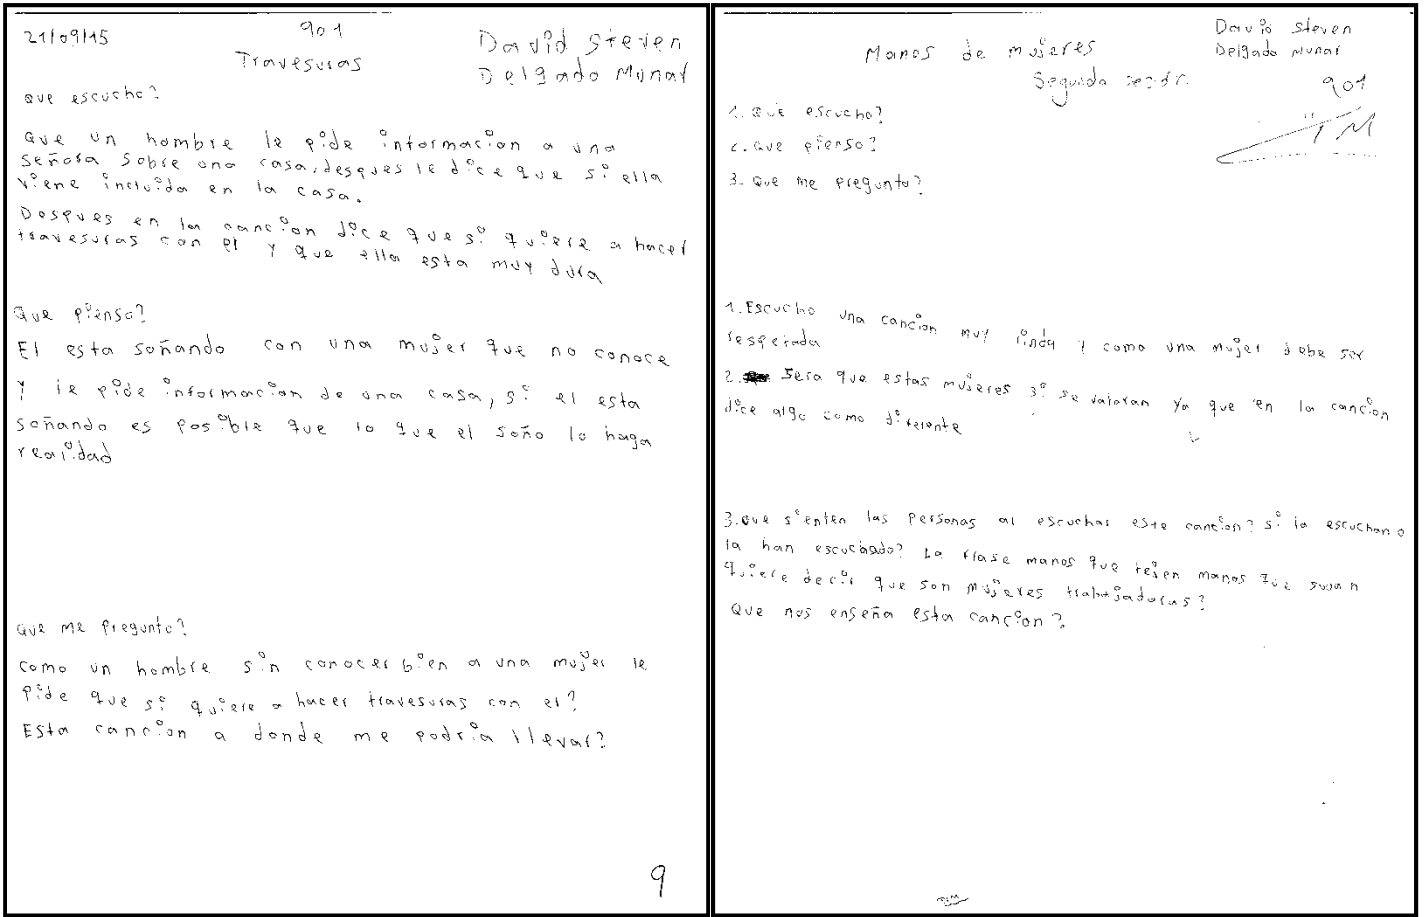 21/09/15
901
Travesuras
David Steven
Delgado Munar
Que escucho?
Que un hombre le pide informacion a una
señora sobre una casa, despues le dice que si ella
viene incluida en la casa.
Despues en la cancion dice que si quiere a hacer
travesuras con el y que ella esta muy dura
Que pienso?
El esta soñando con una mujer que no conoce
y le pide informacion de una casa, si el esta
soñando es posible que lo que el soño lo haga
realidad
Que me pregunto?
Como un hombre sin conocer bien a una mujer le
pide que si quiere a hacer travesuras con el?
Esta cancion a donde me podria llevar?
9
David Steven
Delgado Munar
Manos de mujeres
Segunda
901
1. Que escucho?
2. Que pienso?
3. Que me pregunto?
1. Escucho una cancion muy linda y como una mujer debe ser
respetada
2. Sera que estas mujeres si se valoran ya que en la cancion
dice algo como diferente
3. Que sienten las personas al escuchar este cancion? si la escuchan o
la han escuchado? La frase manos que tejen manos que sudan
quiere decir que son mujeres trabajadoras?
Que nos enseña esta cancion?